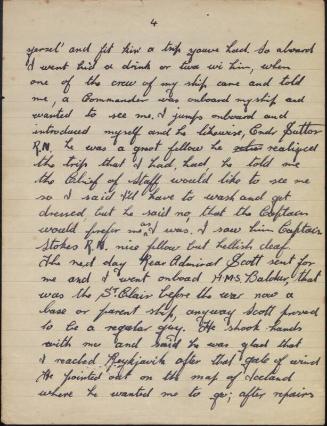 4
yersel' and fit kin a trip youve had. So aboard
I went hid a drink or twa wi him, when
one of the crew of my ship came and told
me, a Commander was onboard my ship and
wanted to see me. I jumps onboard and
introduced myself and he likewise, Cmdr Sutton
R.N. he was a great fellow he realized
the trip that I had, had he told me
the Chief of Staff would like to see me
so I said I'd have to wash and get
dressed, but he said no, that the Captain
would prefer me, as I was. I saw him Captain
Stokes R.N. nice fellow but hellish deaf.
The next day Rear Admiral Scott sent for
me and I went onboad HMS. Baldur, that
was the St. Clair before the war now a
base or parent ship, anyway Scott proved
to be a regular guy. He shook hands
with me and said he was glad that
I reached Reykjavik after that gale of wind
He pointed out on the map of Iceland
where he wanted me to go; after repairs